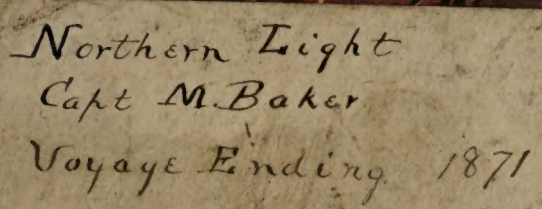 Northern Light
Capt M. Baker
Voyage Ending 1871